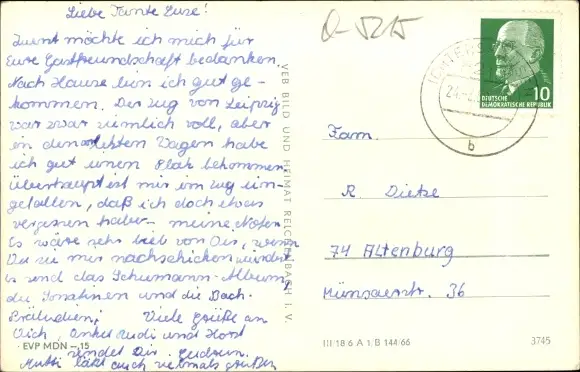 Liebe Tante Luise!
Zuerst möchte ich mich für
Eure Gastfreundschaft bedanken.
Nach Hause bin ich gut ge-
kommen. Der Zug von Leipzig
war zwar ziemlich voll, aber
in den letzten Wagen habe
ich gut einen Platz bekommen.
Überhaupt ist mir im Zug ein-
gefallen, daß ich doch etwas
vergessen habe - meine Noten.
Es wäre sehr lieb von Dir, wenn
Du sie mir nachschicken würdest.
Es sind das Schumann-Album,
die Sonatinen und die Bach-
Präludien! Viele Grüße an
Dich, Onkel Rudi und Horst
sendet Dir Gudrun.
Mutti läßt auch vielmals grüßen
EVP MDN -,15
VEB BILD UND HEIMAT REICHENBACH I. V.
10
DEUTSCHE
DEMOKRATISCHE REPUBLIK
b
Fam.
R. Dietze
74 Altenburg
Münsaerstr. 36
III 18 6 A 1/B 144/66
3745